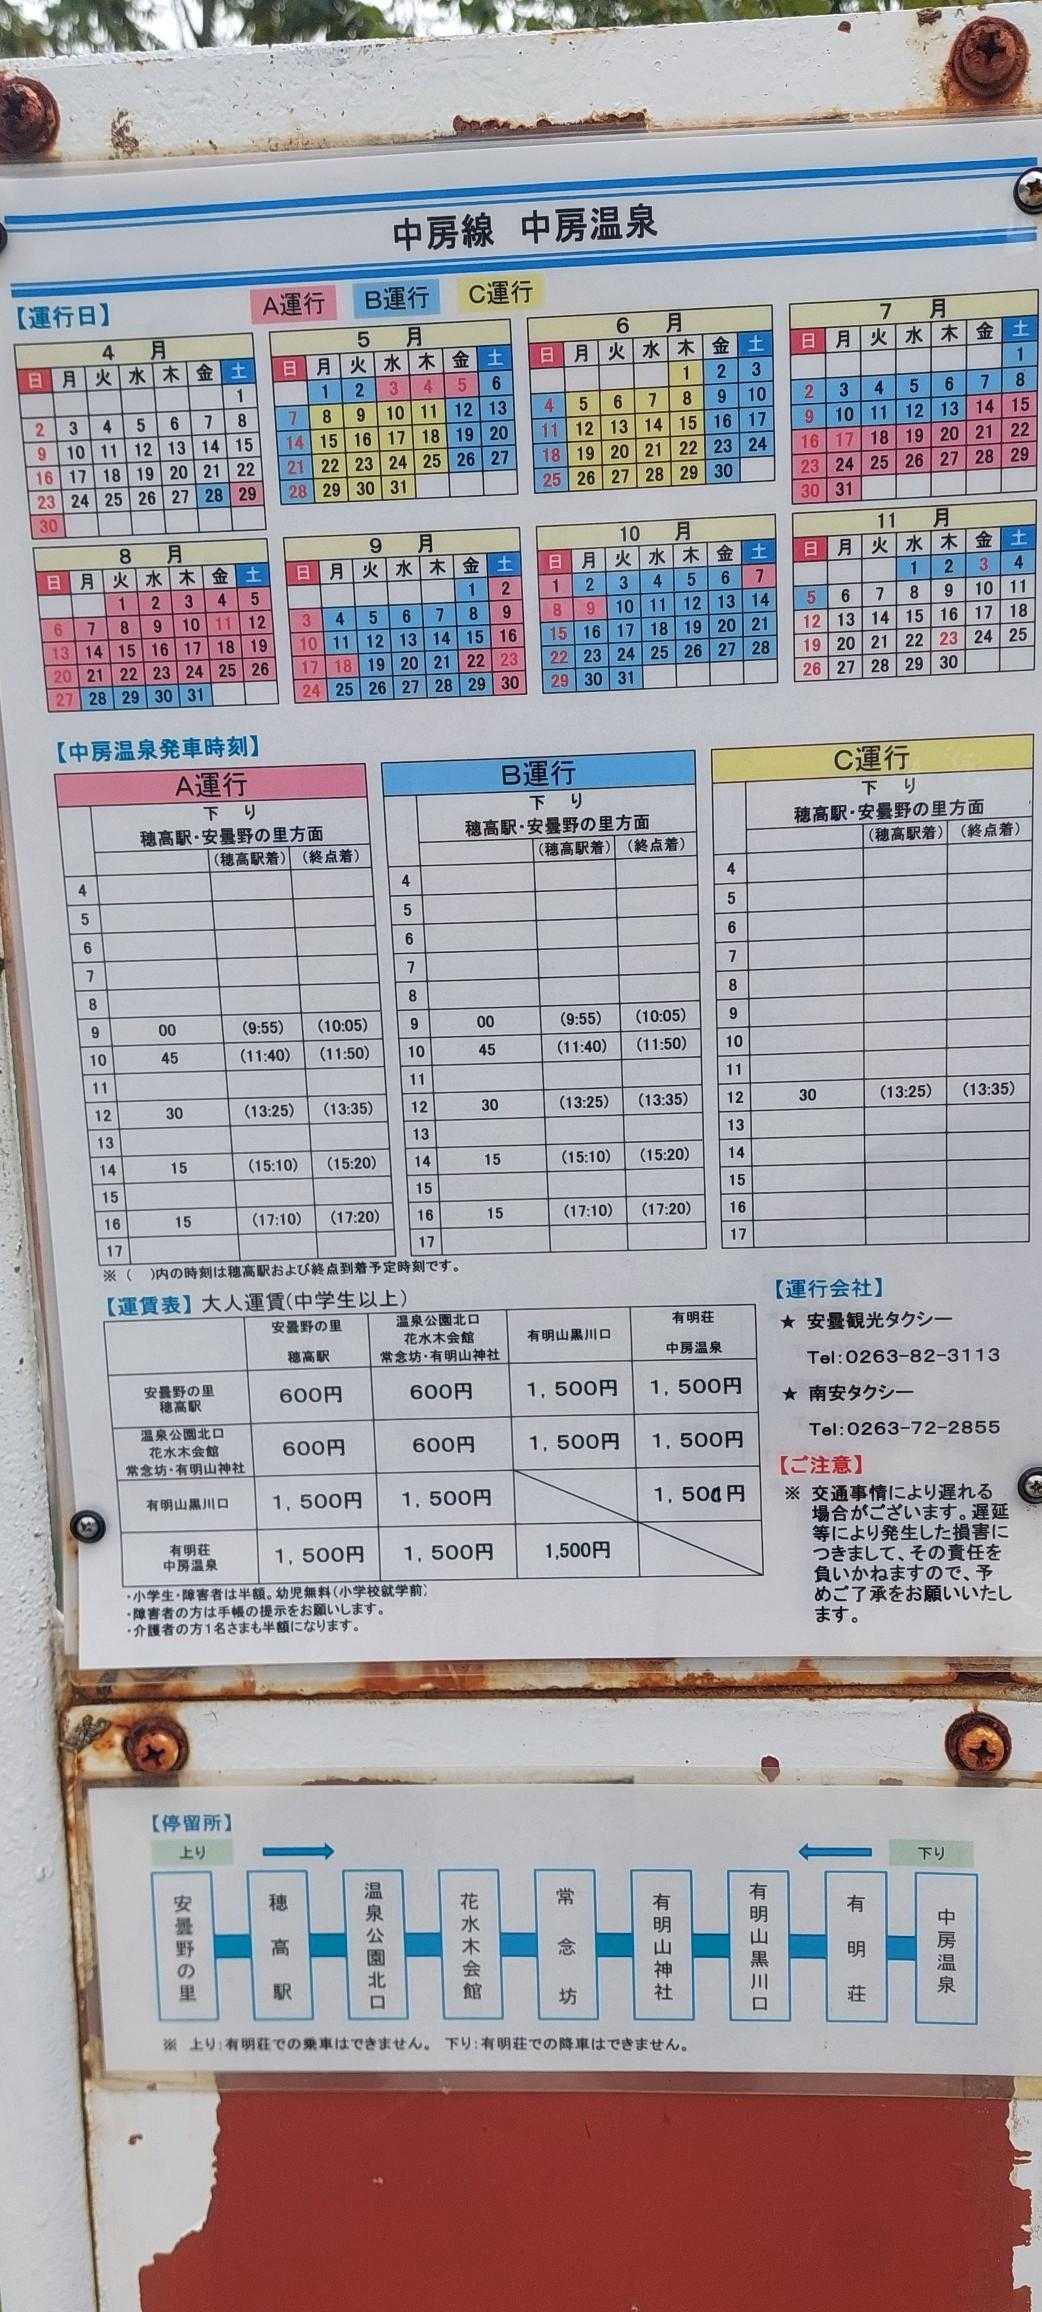 中房線 中房温泉
【運行日】
A運行 B運行 C運行
4 月
日 月 火 水 木 金 土
1
2 3 4 5 6 7 8
9 10 11 12 13 14 15
16 17 18 19 20 21 22
23 24 25 26 27 28 29
30
5 月
日 月 火 水 木 金 土
1 2 3 4 5 6
7 8 9 10 11 12 13
14 15 16 17 18 19 20
21 22 23 24 25 26 27
28 29 30 31
6 月
日 月 火 水 木 金 土
1 2 3
4 5 6 7 8 9 10
11 12 13 14 15 16 17
18 19 20 21 22 23 24
25 26 27 28 29 30
7 月
日 月 火 水 木 金 土
1
2 3 4 5 6 7 8
9 10 11 12 13 14 15
16 17 18 19 20 21 22
23 24 25 26 27 28 29
30 31
8 月
日 月 火 水 木 金 土
1 2 3 4 5
6 7 8 9 10 11 12
13 14 15 16 17 18 19
20 21 22 23 24 25 26
27 28 29 30 31
9 月
日 月 火 水 木 金 土
1 2
3 4 5 6 7 8 9
10 11 12 13 14 15 16
17 18 19 20 21 22 23
24 25 26 27 28 29 30
10 月
日 月 火 水 木 金 土
1 2 3 4 5 6 7
8 9 10 11 12 13 14
15 16 17 18 19 20 21
22 23 24 25 26 27 28
29 30 31
11 月
日 月 火 水 木 金 土
1 2 3 4
5 6 7 8 9 10 11
12 13 14 15 16 17 18
19 20 21 22 23 24 25
26 27 28 29 30
【中房温泉発車時刻】
A運行
下 り
穂高駅・安曇野の里方面
(穂高駅着) (終点着)
4
5
6
7
8
9 00 (9:55) (10:05)
10 45 (11:40) (11:50)
11
12 30 (13:25) (13:35)
13
14 15 (15:10) (15:20)
15
16 15 (17:10) (17:20)
17
B運行
下 り
穂高駅・安曇野の里方面
(穂高駅着) (終点着)
4
5
6
7
8
9 00 (9:55) (10:05)
10 45 (11:40) (11:50)
11
12 30 (13:25) (13:35)
13
14 15 (15:10) (15:20)
15
16 15 (17:10) (17:20)
17
C運行
下 り
穂高駅・安曇野の里方面
(穂高駅着) (終点着)
4
5
6
7
8
9
10
11
12 30 (13:25) (13:35)
13
14
15
16
17
※ ( )内の時刻は穂高駅および終点到着予定時刻です。
【運賃表】 大人運賃(中学生以上)
安曇野の里
穂高駅
温泉公園北口
花水木会館
常念坊・有明山神社
有明山黒川口
有明荘
中房温泉
安曇野の里
穂高駅
600円 600円 1,500円 1,500円
温泉公園北口
花水木会館
常念坊・有明山神社
600円 600円 1,500円 1,500円
有明山黒川口 1,500円 1,500円 1,500円
有明荘
中房温泉
1,500円 1,500円 1,500円
・小学生・障害者は半額。幼児無料(小学校就学前)
・障害者の方は手帳の提示をお願いします。
・介護者の方1名さまも半額になります。
【運行会社】
★ 安曇観光タクシー
Tel:0263-82-3113
★ 南安タクシー
Tel:0263-72-2855
【ご注意】
※ 交通事情により遅れる
場合がございます。遅延
等により発生した損害に
つきまして、その責任を
負いかねますので、予
めご了承をお願いいたし
ます。
【停留所】
上り
下り
安曇野の里
穂高駅
温泉公園北口
花水木会館
常念坊
有明山神社
有明山黒川口
有明荘
中房温泉
※ 上り:有明荘での乗車はできません。 下り:有明荘での降車はできません。